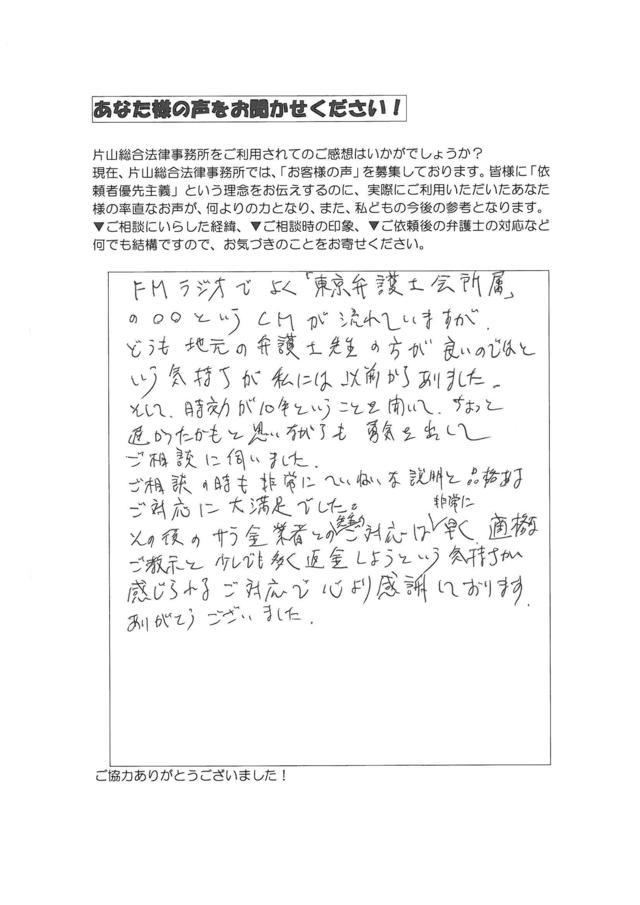 あなた様の声をお聞かせください！
片山総合法律事務所をご利用されてのご感想はいかがでしょうか？
現在、片山総合法律事務所では、「お客様の声」を募集しております。皆様に「依
頼者優先主義」という理念をお伝えするのに、実際にご利用いただいたあなた
様の率直なお声が、何よりの力となり、また、私どもの今後の参考となります。
▼ご相談にいらした経緯、▼ご相談時の印象、▼ご依頼後の弁護士の対応など
何でも結構ですので、お気づきのことをお寄せください。
FMラジオでよく「東京弁護士会所属」
の〇〇というCMが流れていますが、
どうも地元の弁護士先生の方が良いのではと
いう気持ちが私には以前からありました。
そして、時効が10年ということを聞いて、ちょっと
遅かったかもと思いながらも勇気を出して
ご相談に伺いました。
ご相談の時も非常にていねいな説明と品格ある
ご対応に大満足でした。
その後のサラ金業者とのご対応は非常に早く、適格な
ご教示と少しでも多く返金しようという気持ちが
感じられるご対応で心より感謝しております。
ありがとうございました。
ご協力ありがとうございました！